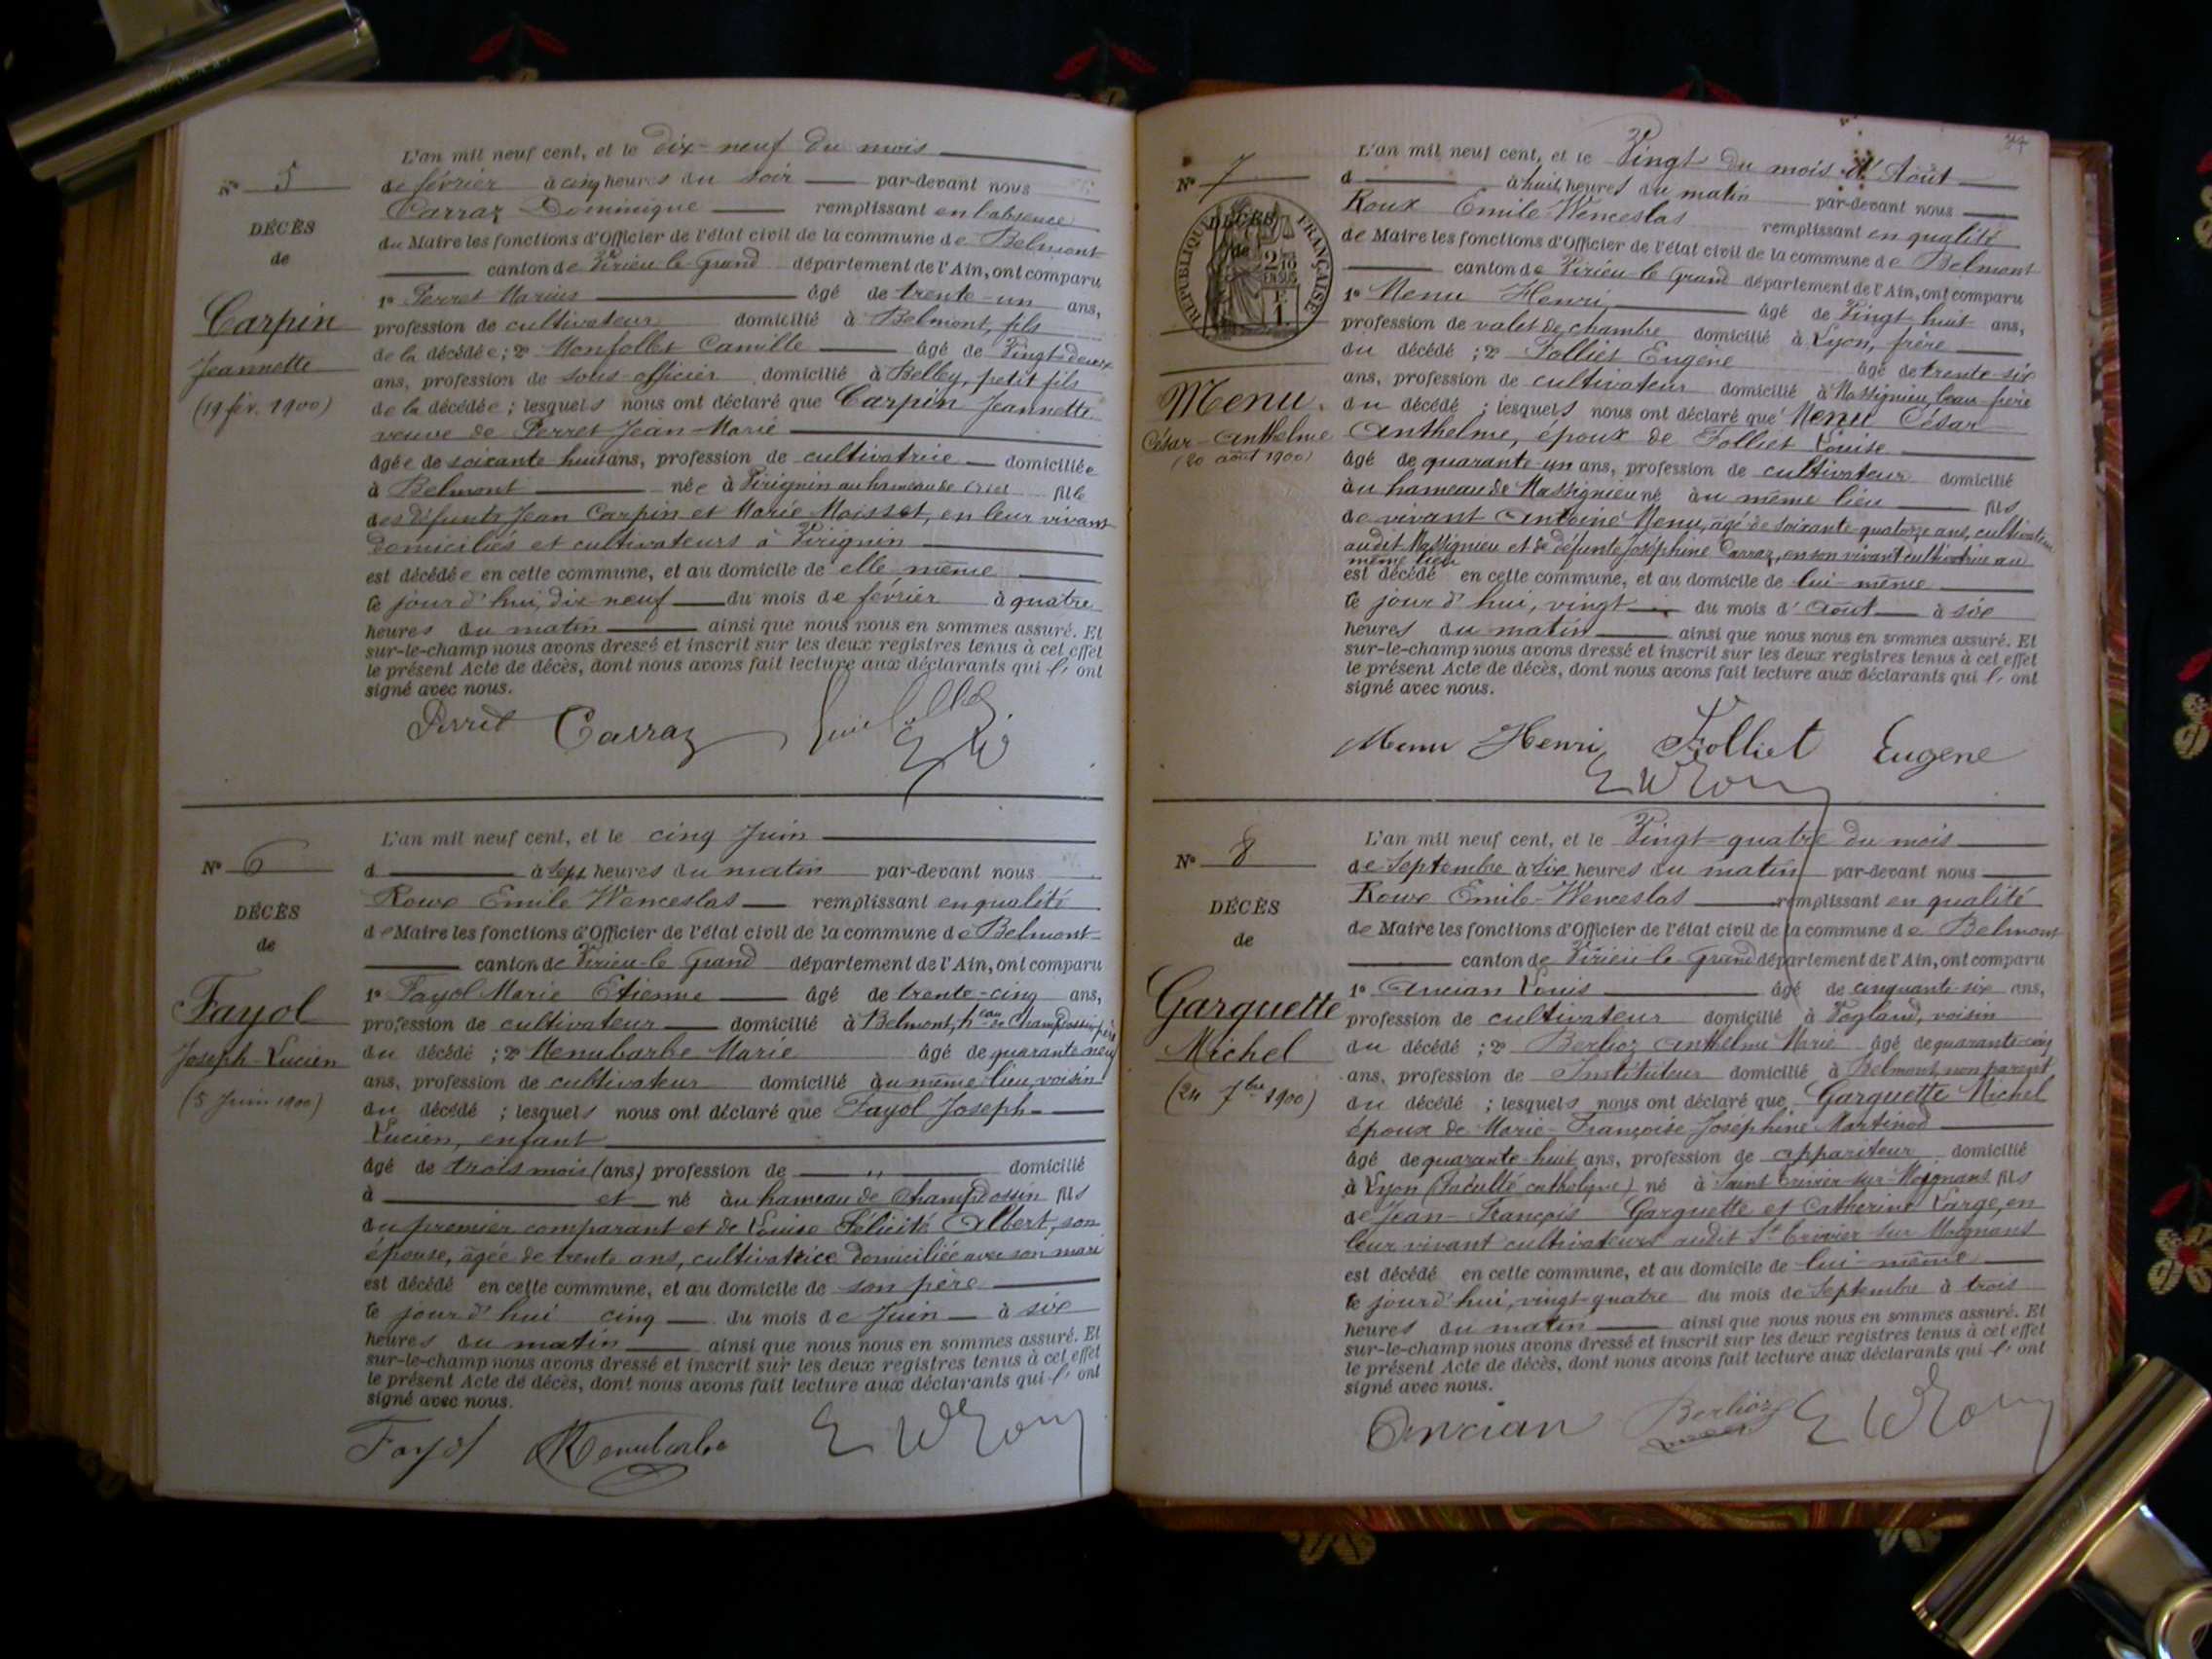 N° 5
DÉCÈS
de
Carpin
Jeannette
(19 fév. 1900)
L'an mil neuf cent, et le dix-neuf du mois
de février à cinq heures du soir par-devant nous
Carraz Dominique remplissant en l'absence
du Maire les fonctions d'Officier de l'état civil de la commune de Belmont
canton de Virieu le Grand département de l'Ain, ont comparu
1° Perret Marius âgé de trente-un ans,
profession de cultivateur domicilié à Belmont, fils
de la décédée; 2° Monfollet Camille âgé de Vingt-deux
ans, profession de sous-officier domicilié à Belley, petit fils
de la décédée; lesquels nous ont déclaré que Carpin Jeannette
veuve de Perret Jean-Marie
âgée de soixante huit ans, profession de cultivatrice domiciliée
à Belmont née à Virignin au hameau de fille
des défunts Jean Carpin et Marie Maisset, en leur vivant
domiciliés et cultivateurs à Virignin
est décédée en cette commune, et au domicile de elle même
le jour d'hui, dix-neuf du mois de février à quatre
heures du matin ainsi que nous nous en sommes assuré. Et
sur-le-champ nous avons dressé et inscrit sur les deux registres tenus à cet effet
le présent Acte de décès, dont nous avons fait lecture aux déclarants qui l' ont
signé avec nous.
Perret Carraz
N° 6
DÉCÈS
de
Fayol
Joseph-Lucien
(5 Juin 1900)
L'an mil neuf cent, et le cinq Juin
d à sept heures du matin par-devant nous
Roux Emile Wenceslas remplissant en qualité
de Maire les fonctions d'Officier de l'état civil de la commune de Belmont
canton de Virieu-le Grand département de l'Ain, ont comparu
1° Fayol Marie Etienne âgé de trente-cinq ans,
profession de cultivateur domicilié à Belmont, h.eau de Champdossin, père
du décédé ; 2° Menubarbe Marie âgé de quarante neuf
ans, profession de cultivateur domicilié au même lieu, voisin
du décédé ; lesquels nous ont déclaré que Fayol Joseph-
Lucien, enfant
âgé de trois mois (ans) profession de " domicilié
à et né au hameau de Champdossin fils
du premier comparant et de Louise Félicité Albert, son
épouse, âgée de trente ans, cultivatrice domiciliée avec son mari
est décédé en cette commune, et au domicile de son père
le jour d'hui cinq du mois de Juin à six
heures du matin ainsi que nous nous en sommes assuré. Et
sur-le-champ nous avons dressé et inscrit sur les deux registres tenus à cet effet
le présent Acte de décès, dont nous avons fait lecture aux déclarants qui l' ont
signé avec nous.
Fayol Menubarbe E W Roux
N° 7
DÉCÈS
de
RÉPUBLIQUE FRANÇAISE
Menu
César-Anthelme
(20 août 1900)
L'an mil neuf cent, et le Vingt du mois d'Août
d à huit heures du matin par-devant nous
Roux Emile-Wenceslas remplissant en qualité
de Maire les fonctions d'Officier de l'état civil de la commune de Belmont
canton de Virieu-le Grand département de l'Ain, ont comparu
1° Menu Henri âgé de Vingt-huit ans,
profession de valet de chambre domicilié à Lyon, frère
du décédé ; 2° Folliet Eugène âgé de trente-six
ans, profession de cultivateur domicilié à Massignieu, beau-frère
du décédé ; lesquels nous ont déclaré que Menu César
Anthelme, époux de Folliet Louise
âgé de quarante-un ans, profession de cultivateur domicilié
au hameau de Massignieu né au même lieu fils
de vivant Antoine Menu, âgé de soixante-quatorze ans, cultivateur
audit Massignieu et de défunte Joséphine Carraz, en son vivant cultivatrice au
même lieu
est décédé en cette commune, et au domicile de lui-même
le jour d'hui, vingt du mois d'Août à six
heures du matin ainsi que nous nous en sommes assuré. Et
sur-le-champ nous avons dressé et inscrit sur les deux registres tenus à cet effet
le présent Acte de décès, dont nous avons fait lecture aux déclarants qui l' ont
signé avec nous.
Menu Henri Folliet Eugene
E W Roux
N° 8
DÉCÈS
de
Garquette
Michel
(24 7bre 1900)
L'an mil neuf cent, et le Vingt-quatre du mois
de Septembre à six heures du matin par-devant nous
Roux Emile-Wenceslas remplissant en qualité
de Maire les fonctions d'Officier de l'état civil de la commune de Belmont
canton de Virieu le Grand département de l'Ain, ont comparu
1° Ancian Louis âgé de cinquante-six ans,
profession de cultivateur domicilié à Vogland, voisin
du décédé ; 2° Berlioz Anthelme Marie âgé de quarante-cinq
ans, profession de Instituteur domicilié à Belmont, non parent
du décédé ; lesquels nous ont déclaré que Garquette Michel
époux de Marie-Françoise-Joséphine Martinod
âgé de quarante-huit ans, profession de appariteur domicilié
à Lyon (faculté catholique) né à Saint Trivier-sur-Moignans fils
de Jean-François Garquette et Catherine Large, en
leur vivant cultivateurs audit St Trivier-sur Moignans
est décédé en cette commune, et au domicile de lui-même
le jour d'hui, vingt-quatre du mois de Septembre à trois
heures du matin ainsi que nous nous en sommes assuré. Et
sur-le-champ nous avons dressé et inscrit sur les deux registres tenus à cet effet
le présent Acte de décès, dont nous avons fait lecture aux déclarants qui l' ont
signé avec nous.
Ancian Berlioz E W Roux